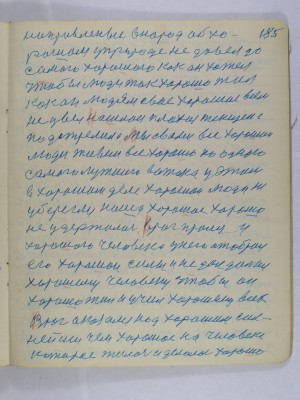 185
направление в народ об хо-
рошом и природе не довел до
самого хорошего как он хотел
чтобы люди так хорошо жил
как он людям свое хорошее всем
не увел Нашлись плохие
подстрелили Мы были все хороши
люди жили все хорошо но одного
самого лучшего
в хорошем деле хорошие люди не
уберегли нашего хорошее хорошо
не удержали Враг пришел у
хорошего человека у него отобрал
его хорошие силы и не дал делать
хорошему человеку чтобы он
хорошо жил и учил хорошему всех
Враг оказался над хорошим силь-
нейший чем хорошее на человеке
которое жило и делало хорошо